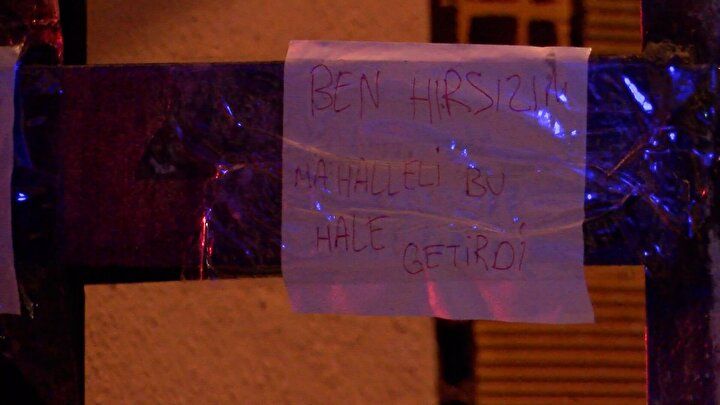 BEN HIRSIZIM
MAHALLELİ BU
HALE GETİRDİ